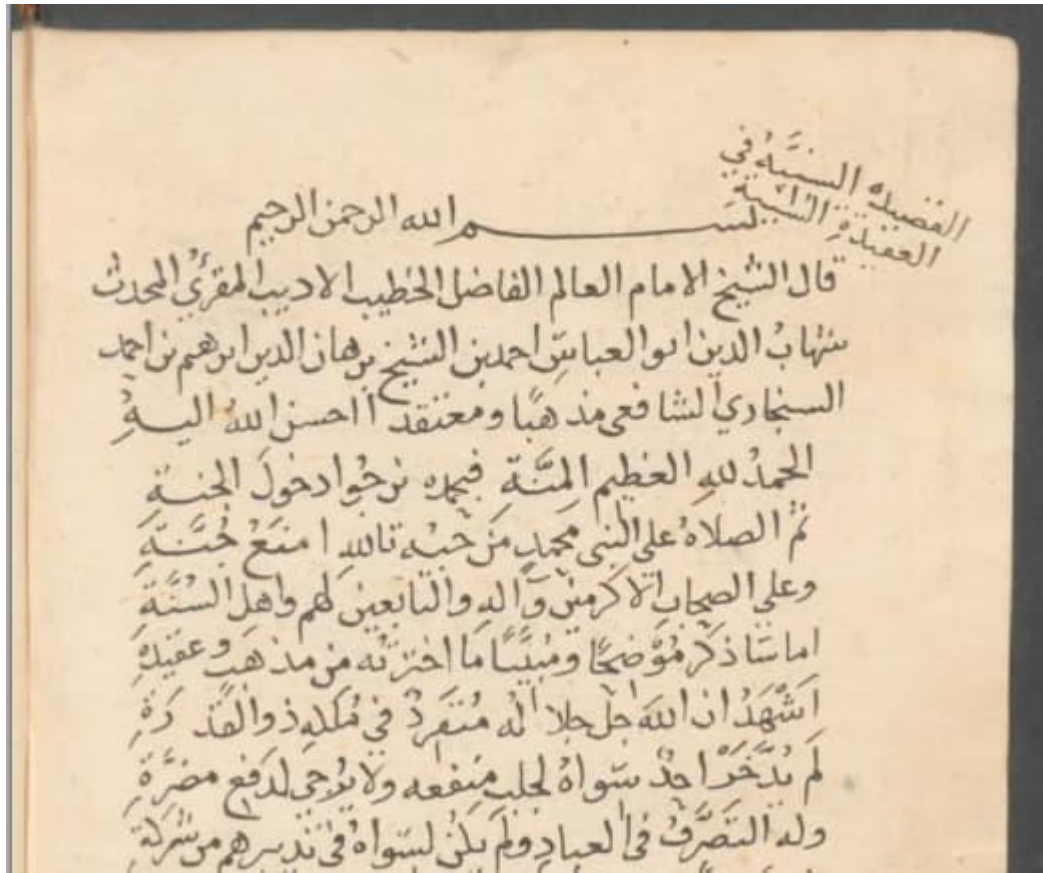 القصيده السنيَّة في
العقيدة السنية
بسم الله الرحمن الرحيم
قال الشيخ الامام العالم الفاضل الخطيب الاديب المقرئ المحدث
شهابُ الدين ابو العباس احمد بن الشيخ برهان الدين ابرهيم بن احمد
السنجاري الشافعي مذهبًا ومعتقدًا احسن اللهُ اليهِ
الحمدُ للهِ العظيم المِنَّةِ فبحمده نرجوا دخولَ الجنةِ
ثم الصلاةُ على النبي محمدٍ مَن حبه تاللهِ امنعُ جُنَّةِ
وعلي الصحابِ الاكرمين وآلهِ والتابعين لهم واهلِ السُنَّةِ
اما سَاذكر مُوَضحًا ومُبَيّنًا مَا اخترتُه من مذهب وعقيدةِ
اَشْهَدُ ان اللهَ جل جلاله مُتفرّدٌ في مُلكهِ ذو القدرةِ
لم يُدَّخَرْ احدٌ سواهُ لجلب منفعه ولا يُرجي لدفع مضرَّةِ
وله التصَرُّفُ في العبادِ ولم يكن لسواهُ في تدبيرهم من شركةِ